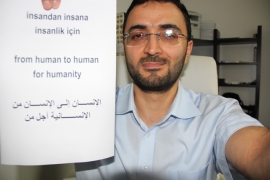 insandan insana
insanlık için
from human to human
for humanity
الانسان إلى الانسان من
الانسانية أجل من